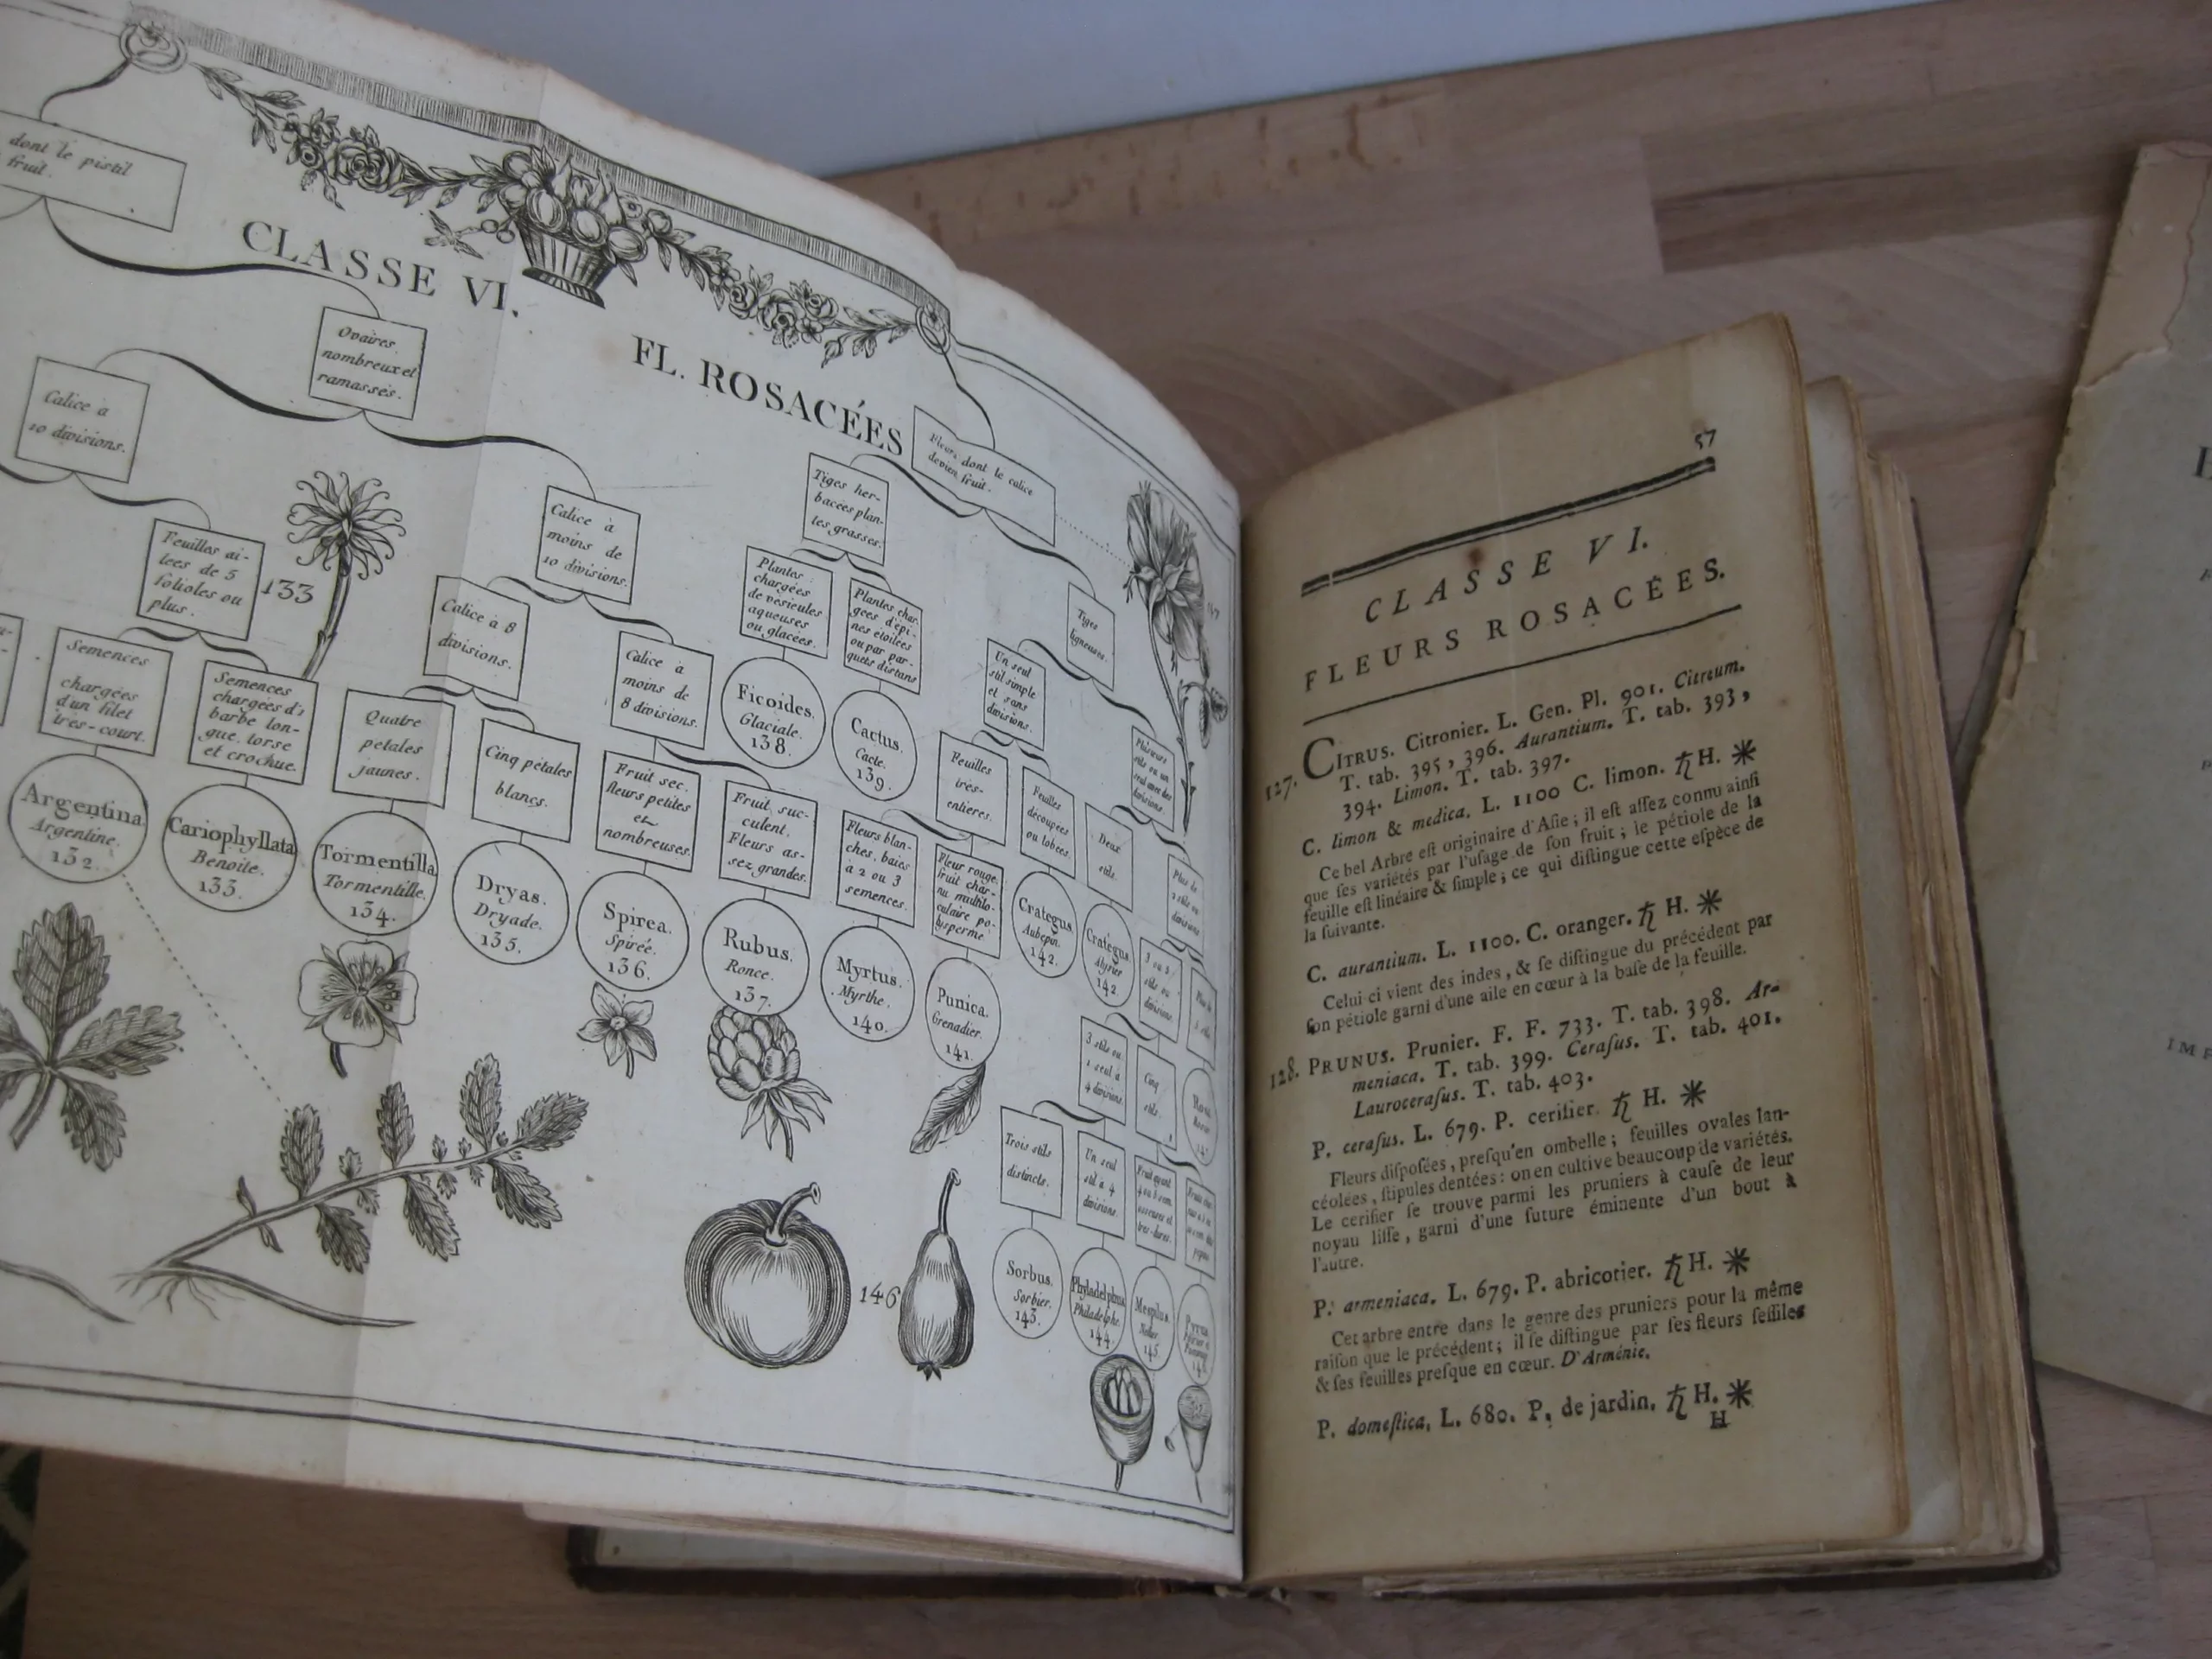 dont le pistil
fruit.
CLASSE VI.
FL. ROSACÉES
Ovaires
nombreux et
ramassés.
Calice à
10 divisions.
Fleurs dont le calice
devien fruit.
Tiges her-
bacées plan-
tes grasses.
Calice à
moins de
10 divisions.
Feuilles ai-
lees de 5
folioles ou
plus.
133
Plantes
chargées
de vesicules
aqueuses
ou glacées.
Plantes char-
gées d'epi-
nes étoilées
ou par par-
quets distans
Tiges
ligneuses.
Calice à 8
divisions.
Calice à
moins de
8 divisions.
Un seul
stil simple
et sans
divisions.
Semences
chargées
d'un filet
tres-court.
Semences
chargées d'1
barbe lon-
gue, torse
et crochue.
Quatre
petales
jaunes.
Cinq pétales
blancs.
Fruit sec.
fleurs petites
et
nombreuses.
Fruit suc-
culent.
Fleurs as-
sez grandes.
Ficoides.
Glaciale.
138.
Cactus.
Cacte.
139.
Feuilles
trés-
entieres.
Feuilles
découpées
ou lobées.
Plusieurs
stils ou un
seul avec des
divisions.
Deux
stils.
Fleurs blan-
ches, baies
à 2 ou 3
semences.
Fleur rouge,
fruit char-
nu multilo-
culaire po-
lysperme.
Argentina.
Argentine.
132.
Cariophyllata
Benoite.
133.
Tormentilla.
Tormentille.
134.
Dryas.
Dryade.
135.
Spirea.
Spirée.
136.
Rubus.
Ronce.
137.
Myrtus.
Myrthe.
140.
Punica.
Grenadier.
141.
Crategus.
Aubepin.
142.
Crategus.
142.
3 stils ou
1 seul à
4 divisions.
Cinq
stils.
Trois stils
distincts.
Un seul
stil à 4
divisions.
146
Sorbus.
Sorbier.
143.
Phyladelphus.
Philadelphe.
144.
Mespilus.
145.
Pyrus
57
CLASSE VI.
FLEURS ROSACÉES.
127. CITRUS. Citronier. L. Gen. Pl. 901. Citreum.
T. tab. 395, 396. Aurantium. T. tab. 393,
394. Limon. T. tab. 397.
C. limon & medica. L. 1100 C. limon. ♄ H. ✳
Ce bel Arbre eſt originaire d'Aſie ; il eſt aſſez connu ainſi
que ſes variétés par l'uſage de ſon fruit ; le pétiole de la
feuille eſt linéaire & ſimple ; ce qui diſtingue cette eſpèce de
la ſuivante.
C. aurantium. L. 1100. C. oranger. ♄ H. ✳
Celui ci vient des indes, & ſe diſtingue du précédent par
ſon pétiole garni d'une aile en cœur à la baſe de la feuille.
128. PRUNUS. Prunier. F. F. 733. T. tab. 398. Ar-
meniaca. T. tab. 399. Ceraſus. T. tab. 401.
Lauroceraſus. T. tab. 403.
P. ceraſus. L. 679. P. ceriſier. ♄ H. ✳
Fleurs diſpoſées, preſqu'en ombelle ; feuilles ovales lan-
céolées, ſtipules dentées : on en cultive beaucoup de variétés.
Le ceriſier ſe trouve parmi les pruniers à cauſe de leur
noyau liſſe, garni d'une ſuture éminente d'un bout à
l'autre.
P. armeniaca. L. 679. P. abricotier. ♄ H. ✳
Cet arbre entre dans le genre des pruniers pour la même
raiſon que le précédent ; il ſe diſtingue par ſes fleurs ſeſſiles
& ſes feuilles preſque en cœur. D'Arménie.
P. domeſtica. L. 680. P. de jardin. ♄ H. ✳
H